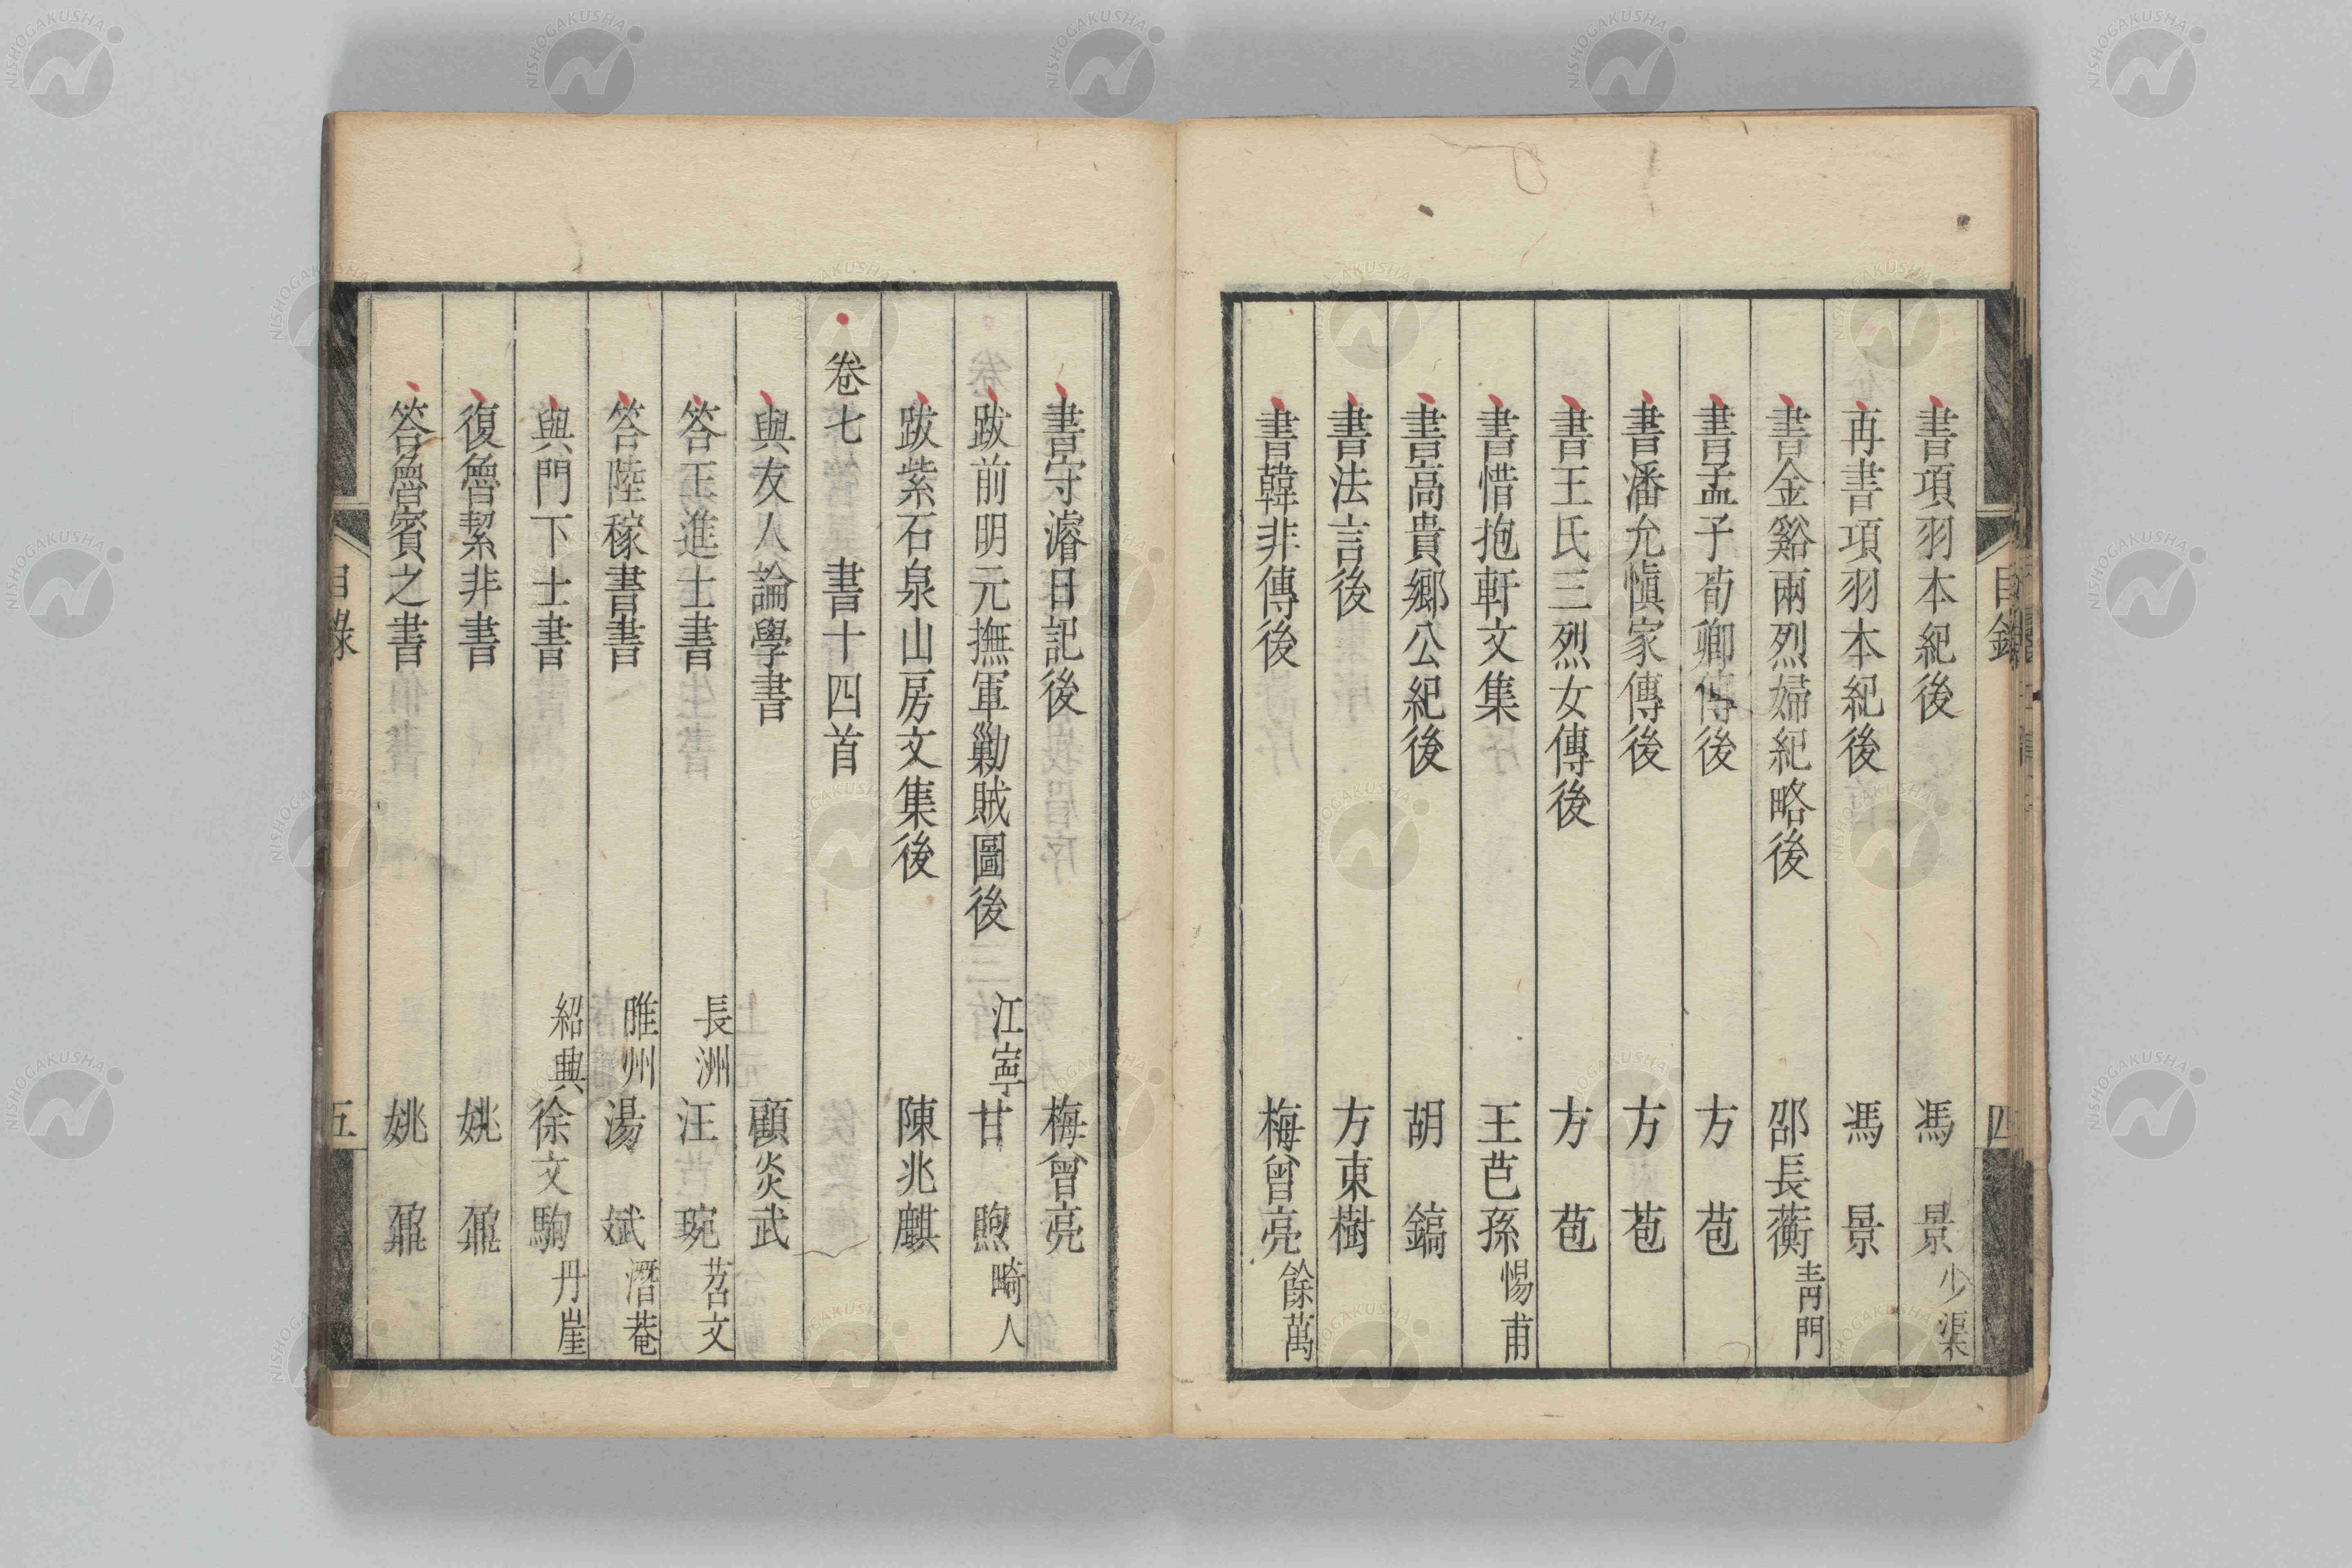 書項羽本紀後 馮景 少渠
再書項羽本紀後 馮景
書金谿兩烈婦紀略後 邵長蘅 青門
書孟子荀卿傳後 方苞
書潘允愼家傳後 方苞
書王氏三烈女傳後 方苞
書惜抱軒文集 王芑孫 惕甫
書高貴鄉公紀後 胡鎬
書法言後 方東樹
書韓非傳後 梅曾亮 餘萬
目錄 四
書守濬日記後 梅曾亮
跋前明元撫軍勦賊圖後 江寧 甘煦 畸人
跋紫石泉山房文集後 陳兆麒
卷七 書十四首
與友人論學書 顧炎武
答王進士書 長洲 汪琬 苕文
答陸稼書書 睢州 湯斌 潛菴
與門下士書 紹興 徐文駒 丹崖
復魯絜非書 姚鼐
答魯賓之書 姚鼐
目錄 五
NISHOGAKUSHA